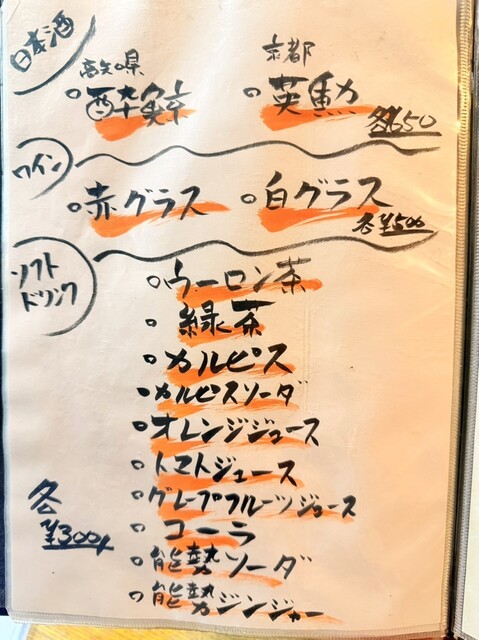 日本酒
高知県 京都
酔鯨 英勲
各650
ワイン
赤グラス 白グラス
各¥500
ソフト
ドリンク
ウーロン茶
緑茶
カルピス
カルピスソーダ
オレンジジュース
トマトジュース
グレープフルーツジュース
コーラ
能勢ソーダ
能勢ジンジャー
各
¥300